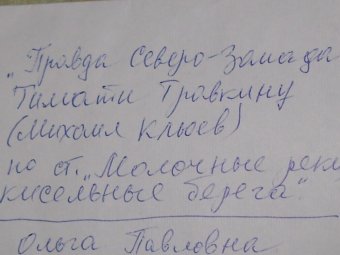 „Правда Северо-Запада
Тимати Травкину
(Михаил Клюев)
на ст. „Молочные реки
кисельные берега".
Ольга Павловна